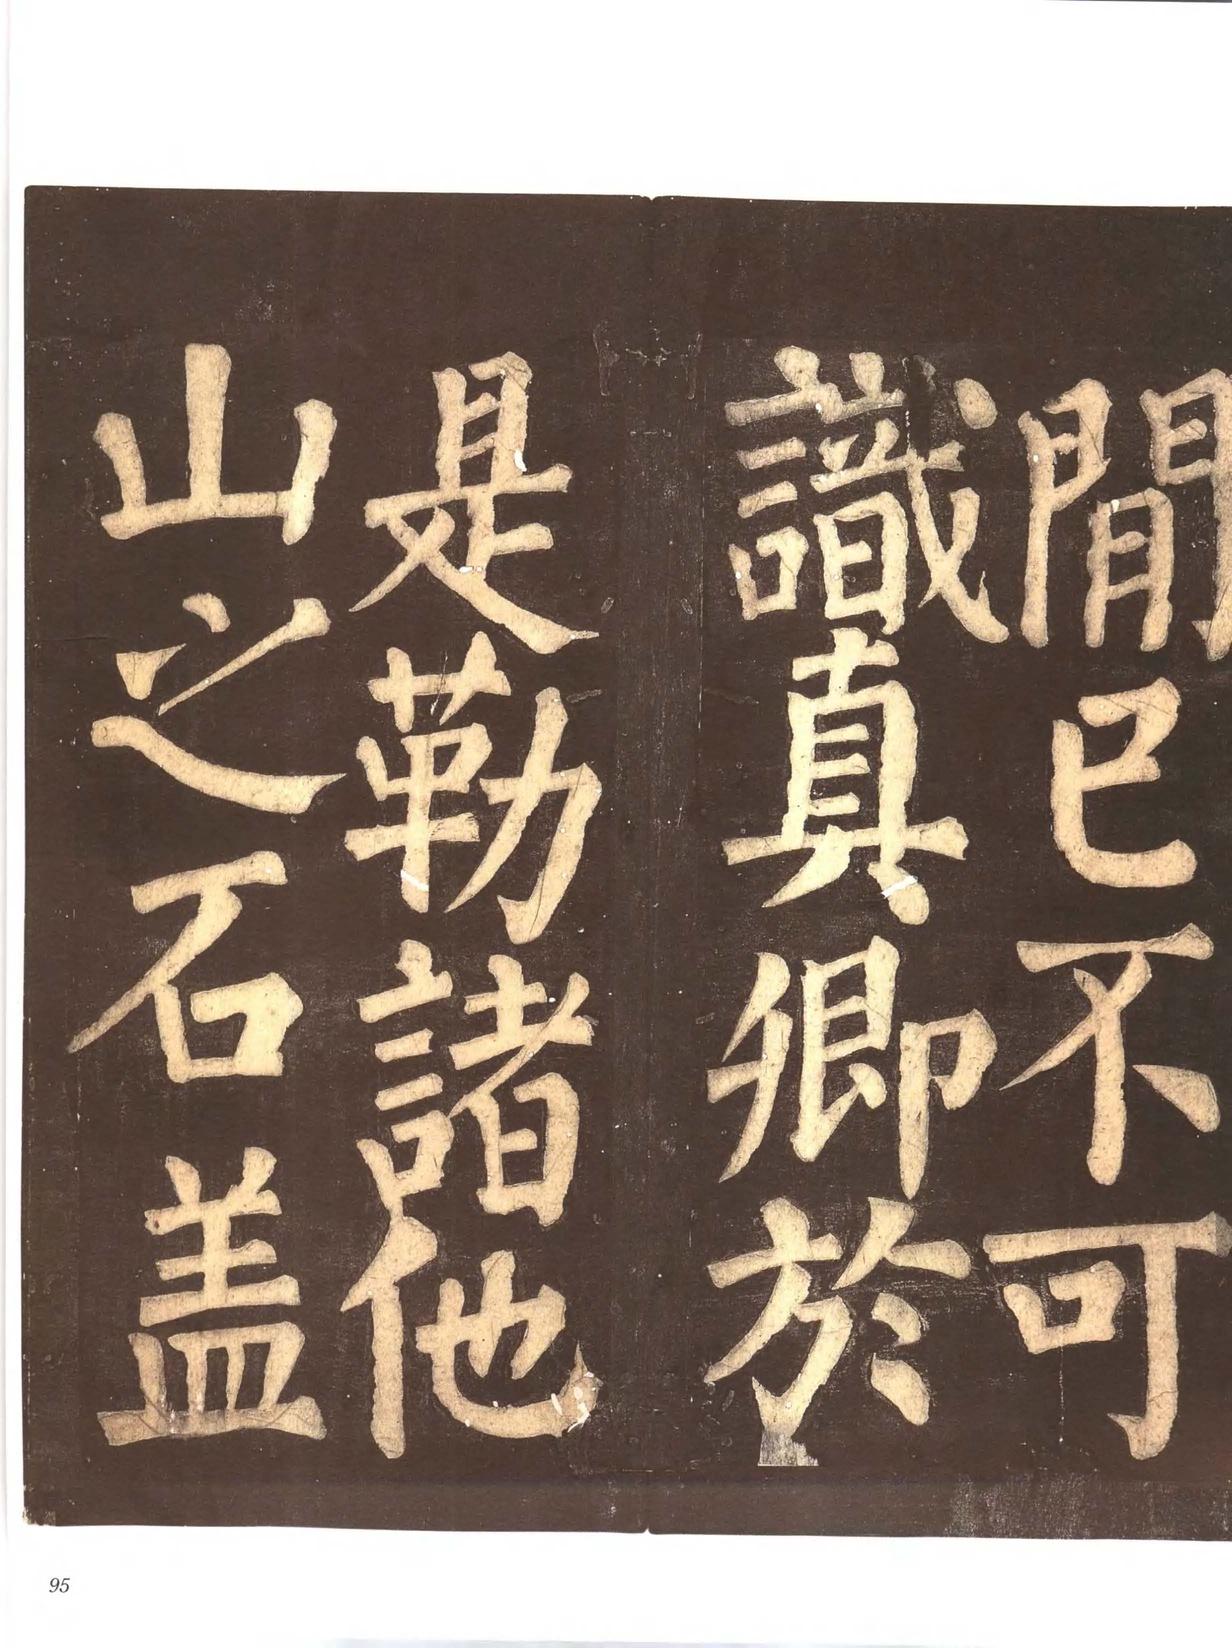 閒已不可
識真卿於
是勒諸他
山之石盖
95